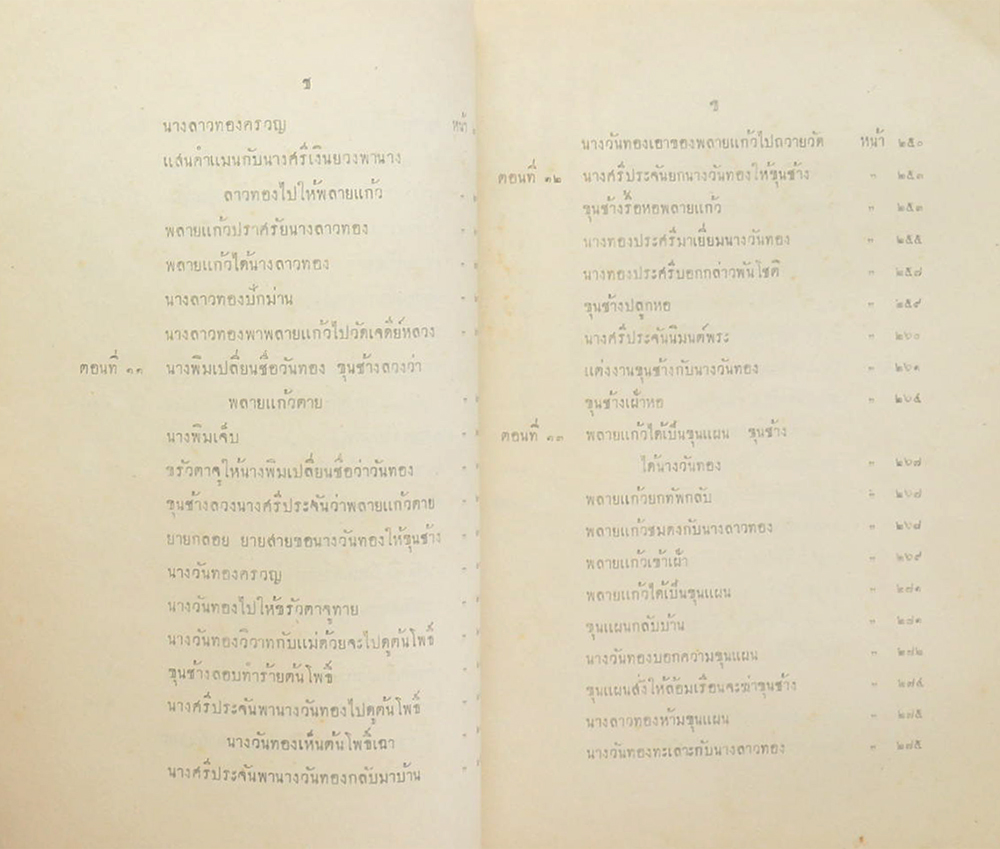 ช
นางลาวทองครวญ หน้า
แสนคำแมนกับนางศรีเงินยวงพานาง
ลาวทองไปให้พลายแก้ว "
พลายแก้วปราศรัยนางลาวทอง "
พลายแก้วได้นางลาวทอง "
นางลาวทองปักม่าน "
นางลาวทองพาพลายแก้วไปวัดเจดีย์หลวง "
ตอนที่ ๑๑ นางพิมเปลี่ยนชื่อวันทอง ขุนช้างลวงว่า
พลายแก้วตาย "
นางพิมเจ็บ "
ขรัวตาจูให้นางพิมเปลี่ยนชื่อว่าวันทอง "
ขุนช้างลวงนางศรีประจันว่าพลายแก้วตาย "
ยายกลอย ยายสายขอนางวันทองให้ขุนช้าง "
นางวันทองครวญ "
นางวันทองไปให้ขรัวตาจูทาย "
นางวันทองวิวาทกับแม่ด้วยจะไปดูต้นโพธิ์ "
ขุนช้างลอบทำร้ายต้นโพธิ์ "
นางศรีประจันพานางวันทองไปดูต้นโพธิ์ "
นางวันทองเห็นต้นโพธิ์เฉา "
นางศรีประจันพานางวันทองกลับมาบ้าน "
ซ
นางวันทองเอาของพลายแก้วไปถวายวัด หน้า ๒๕๐
ตอนที่ ๑๒ นางศรีประจันยกนางวันทองให้ขุนช้าง " ๒๕๓
ขุนช้างรื้อหอพลายแก้ว " ๒๕๓
นางทองประศรีมาเยี่ยมนางวันทอง " ๒๕๕
นางทองประศรีบอกกล่าวพันโชติ " ๒๕๗
ขุนช้างปลูกหอ " ๒๕๙
นางศรีประจันนิมนต์พระ " ๒๖๐
แต่งงานขุนช้างกับนางวันทอง " ๒๖๑
ขุนช้างเฝ้าหอ " ๒๖๔
ตอนที่ ๑๓ พลายแก้วได้เป็นขุนแผน ขุนช้าง
ได้นางวันทอง " ๒๖๗
พลายแก้วยกทัพกลับ " ๒๖๗
พลายแก้วชมดงกับนางลาวทอง " ๒๖๘
พลายแก้วเข้าเฝ้า " ๒๖๙
พลายแก้วได้เป็นขุนแผน " ๒๗๑
ขุนแผนกลับบ้าน " ๒๗๑
นางวันทองบอกความขุนแผน " ๒๗๒
ขุนแผนสั่งให้ล้อมเรือนจะฆ่าขุนช้าง " ๒๗๔
นางลาวทองห้ามขุนแผน " ๒๗๕
นางวันทองทะเลาะกับนางลาวทอง " ๒๗๕